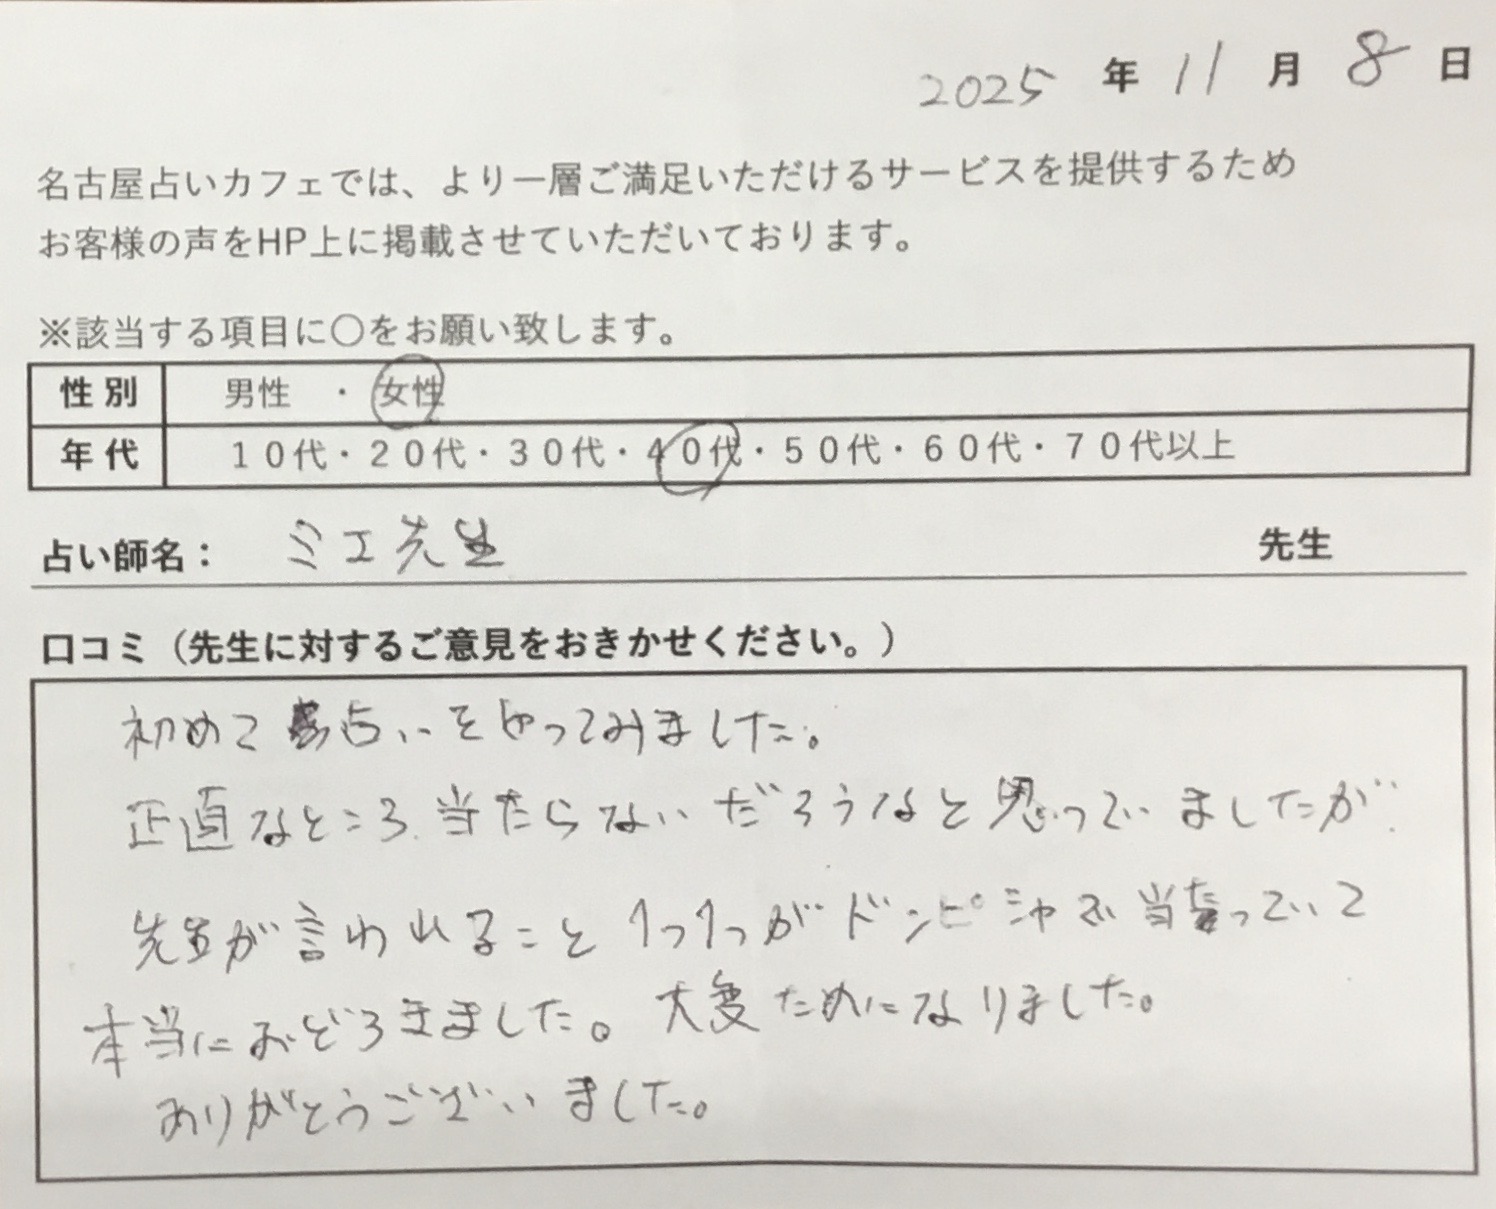 2025 年 11 月 8 日
名古屋占いカフェでは、より一層ご満足いただけるサービスを提供するため
お客様の声をHP上に掲載させていただいております。
※該当する項目に〇をお願い致します。
性別 男性 ・ 女性
年代 10代・20代・30代・40代・50代・60代・70代以上
占い師名： ミエ先生 先生
口コミ（先生に対するご意見をおきかせください。）
初めて占いをやってみました。
正直なところ、当たらないだろうなと思っていましたが、
先生が言われること1つ1つがドンピシャで当たっていて
本当におどろきました。大変ためになりました。
ありがとうございました。